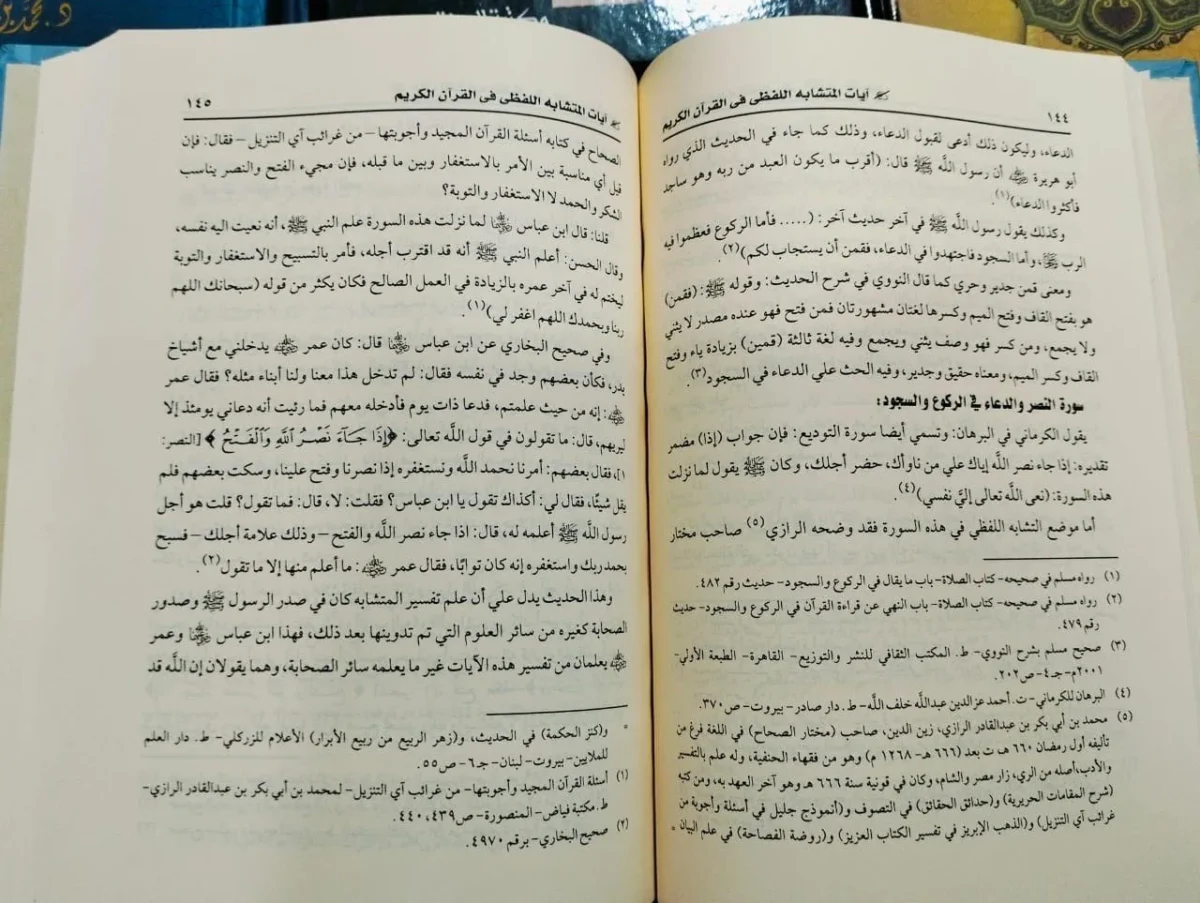 آيات المتشابه اللفظى فى القرآن الكريم ١٤٤
الدعاء، وليكون ذلك أدعى لقبول الدعاء، وذلك كما جاء في الحديث الذي رواه
أبو هريرة ﵁ أن رسول اللَّه ﷺ قال: (أقرب ما يكون العبد من ربه وهو ساجد
فأكثروا الدعاء)(١).
وكذلك يقول رسول اللَّه ﷺ في آخر حديث آخر: (..... فأما الركوع فعظموا فيه
الرب ﷻ، وأما السجود فاجتهدوا في الدعاء، فقمن أن يستجاب لكم)(٢).
ومعنى قمن جدير وحري كما قال النووي في شرح الحديث: وقوله ﷺ: (فقمن)
هو بفتح القاف وفتح الميم وكسرها لغتان مشهورتان فمن فتح فهو عنده مصدر لا يثني
ولا يجمع، ومن كسر فهو وصف يثني ويجمع وفيه لغة ثالثة (قمين) بزيادة ياء وفتح
القاف وكسر الميم، ومعناه حقيق وجدير، وفيه الحث علي الدعاء في السجود(٣).
سورة النصر والدعاء في الركوع والسجود:
يقول الكرماني في البرهان: وتسمي أيضا سورة التوديع: فإن جواب (إذا) مضمر
تقديره: إذا جاء نصر اللَّه إياك علي من ناوأك، حضر أجلك، وكان ﷺ يقول لما نزلت
هذه السورة: (نعى اللَّه تعالى إليَّ نفسي)(٤).
أما موضع التشابه اللفظي في هذه السورة فقد وضحه الرازي(٥) صاحب مختار
(١) رواه مسلم في صحيحه- كتاب الصلاة- باب ما يقال في الركوع والسجود- حديث رقم ٤٨٢.
(٢) رواه مسلم في صحيحه- كتاب الصلاة- باب النهي عن قراءة القرآن في الركوع والسجود- حديث
رقم ٤٧٩.
(٣) صحيح مسلم بشرح النووي- ط. المكتب الثقافي للنشر والتوزيع- القاهرة- الطبعة الأولي-
٢٠٠١م- جـ٤- ص٢٠٢.
(٤) البرهان للكرماني- ت. أحمد عز الدين عبداللَّه خلف اللَّه- ط. دار صادر- بيروت- ص٣٧٠.
(٥) محمد بن أبي بكر بن عبدالقادر الرازي، زين الدين، صاحب (مختار الصحاح) في اللغة فرغ من
تأليفه أول رمضان ٦٦٠ هـ، ت بعد (٦٦٦ هـ- ١٢٦٨ م) وهو من فقهاء الحنفية، وله علم بالتفسير
والأدب، أصله من الري، زار مصر والشام، وكان في قونية سنة ٦٦٦ هـ وهو آخر العهد به، ومن كتبه
(شرح المقامات الحريرية) و(حدائق الحقائق) في التصوف و(أنموذج جليل في أسئلة وأجوبة من
غرائب آي التنزيل) و(الذهب الإبريز في تفسير الكتاب العزيز) و(روضة الفصاحة) في علم البيان =
آيات المتشابه اللفظى فى القرآن الكريم ١٤٥
الصحاح في كتابه أسئلة القرآن المجيد وأجوبتها- من غرائب آي التنزيل – فقال: فإن
قيل أي مناسبة بين الأمر بالاستغفار وبين ما قبله، فإن مجيء الفتح والنصر يناسب
الشكر والحمد لا الاستغفار والتوبة؟
قلنا: قال ابن عباس ﵄ لما نزلت هذه السورة علم النبي ﷺ، أنه نعيت اليه نفسه،
وقال الحسن: أعلم النبي ﷺ أنه قد اقترب أجله، فأمر بالتسبيح والاستغفار والتوبة
ليختم له في آخر عمره بالزيادة في العمل الصالح فكان يكثر من قوله (سبحانك اللهم
ربنا وبحمدك اللهم اغفر لي)(١).
وفي صحيح البخاري عن ابن عباس ﵄ قال: كان عمر ﵁ يدخلني مع أشياخ
بدر، فكأن بعضهم وجد في نفسه فقال: لم تدخل هذا معنا ولنا أبناء مثله؟ فقال عمر
﵁: إنه من حيث علمتم، فدعا ذات يوم فأدخله معهم فما رئيت أنه دعاني يومئذ إلا
ليريهم، قال: ما تقولون في قول اللَّه تعالى: ﴿إِذَا جَآءَ نَصْرُ ٱللَّهِ وَٱلْفَتْحُ﴾ [النصر:
١]، فقال بعضهم: أمرنا نحمد اللَّه ونستغفره إذا نصرنا وفتح علينا، وسكت بعضهم فلم
يقل شيئًا، فقال لي: أكذاك تقول يا ابن عباس؟ فقلت: لا، قال: فما تقول؟ قلت هو أجل
رسول اللَّه ﷺ أعلمه له، قال: اذا جاء نصر اللَّه والفتح – وذلك علامة أجلك – فسبح
بحمد ربك واستغفره إنه كان توابًا، فقال عمر ﵁: ما أعلم منها إلا ما تقول(٢).
وهذا الحديث يدل علي أن علم تفسير المتشابه كان في صدر الرسول ﷺ وصدور
الصحابة كغيره من سائر العلوم التي تم تدوينها بعد ذلك، فهذا ابن عباس ﵄ وعمر
﵁ يعلمان من تفسير هذه الآيات غير ما يعلمه سائر الصحابة، وهما يقولان إن اللَّه قد
= و(كنز الحكمة) في الحديث، و(زهر الربيع من ربيع الأبرار) الأعلام للزركلي- ط. دار العلم
للملايين- بيروت- لبنان- جـ٦- ص٥٥.
(١) أسئلة القرآن المجيد وأجوبتها- من غرائب آي التنزيل- لمحمد بن أبي بكر بن عبدالقادر الرازي-
ط. مكتبة فياض- المنصورة- ص٤٣٩، ٤٤٠.
(٢) صحيح البخاري- برقم ٤٩٧٠.